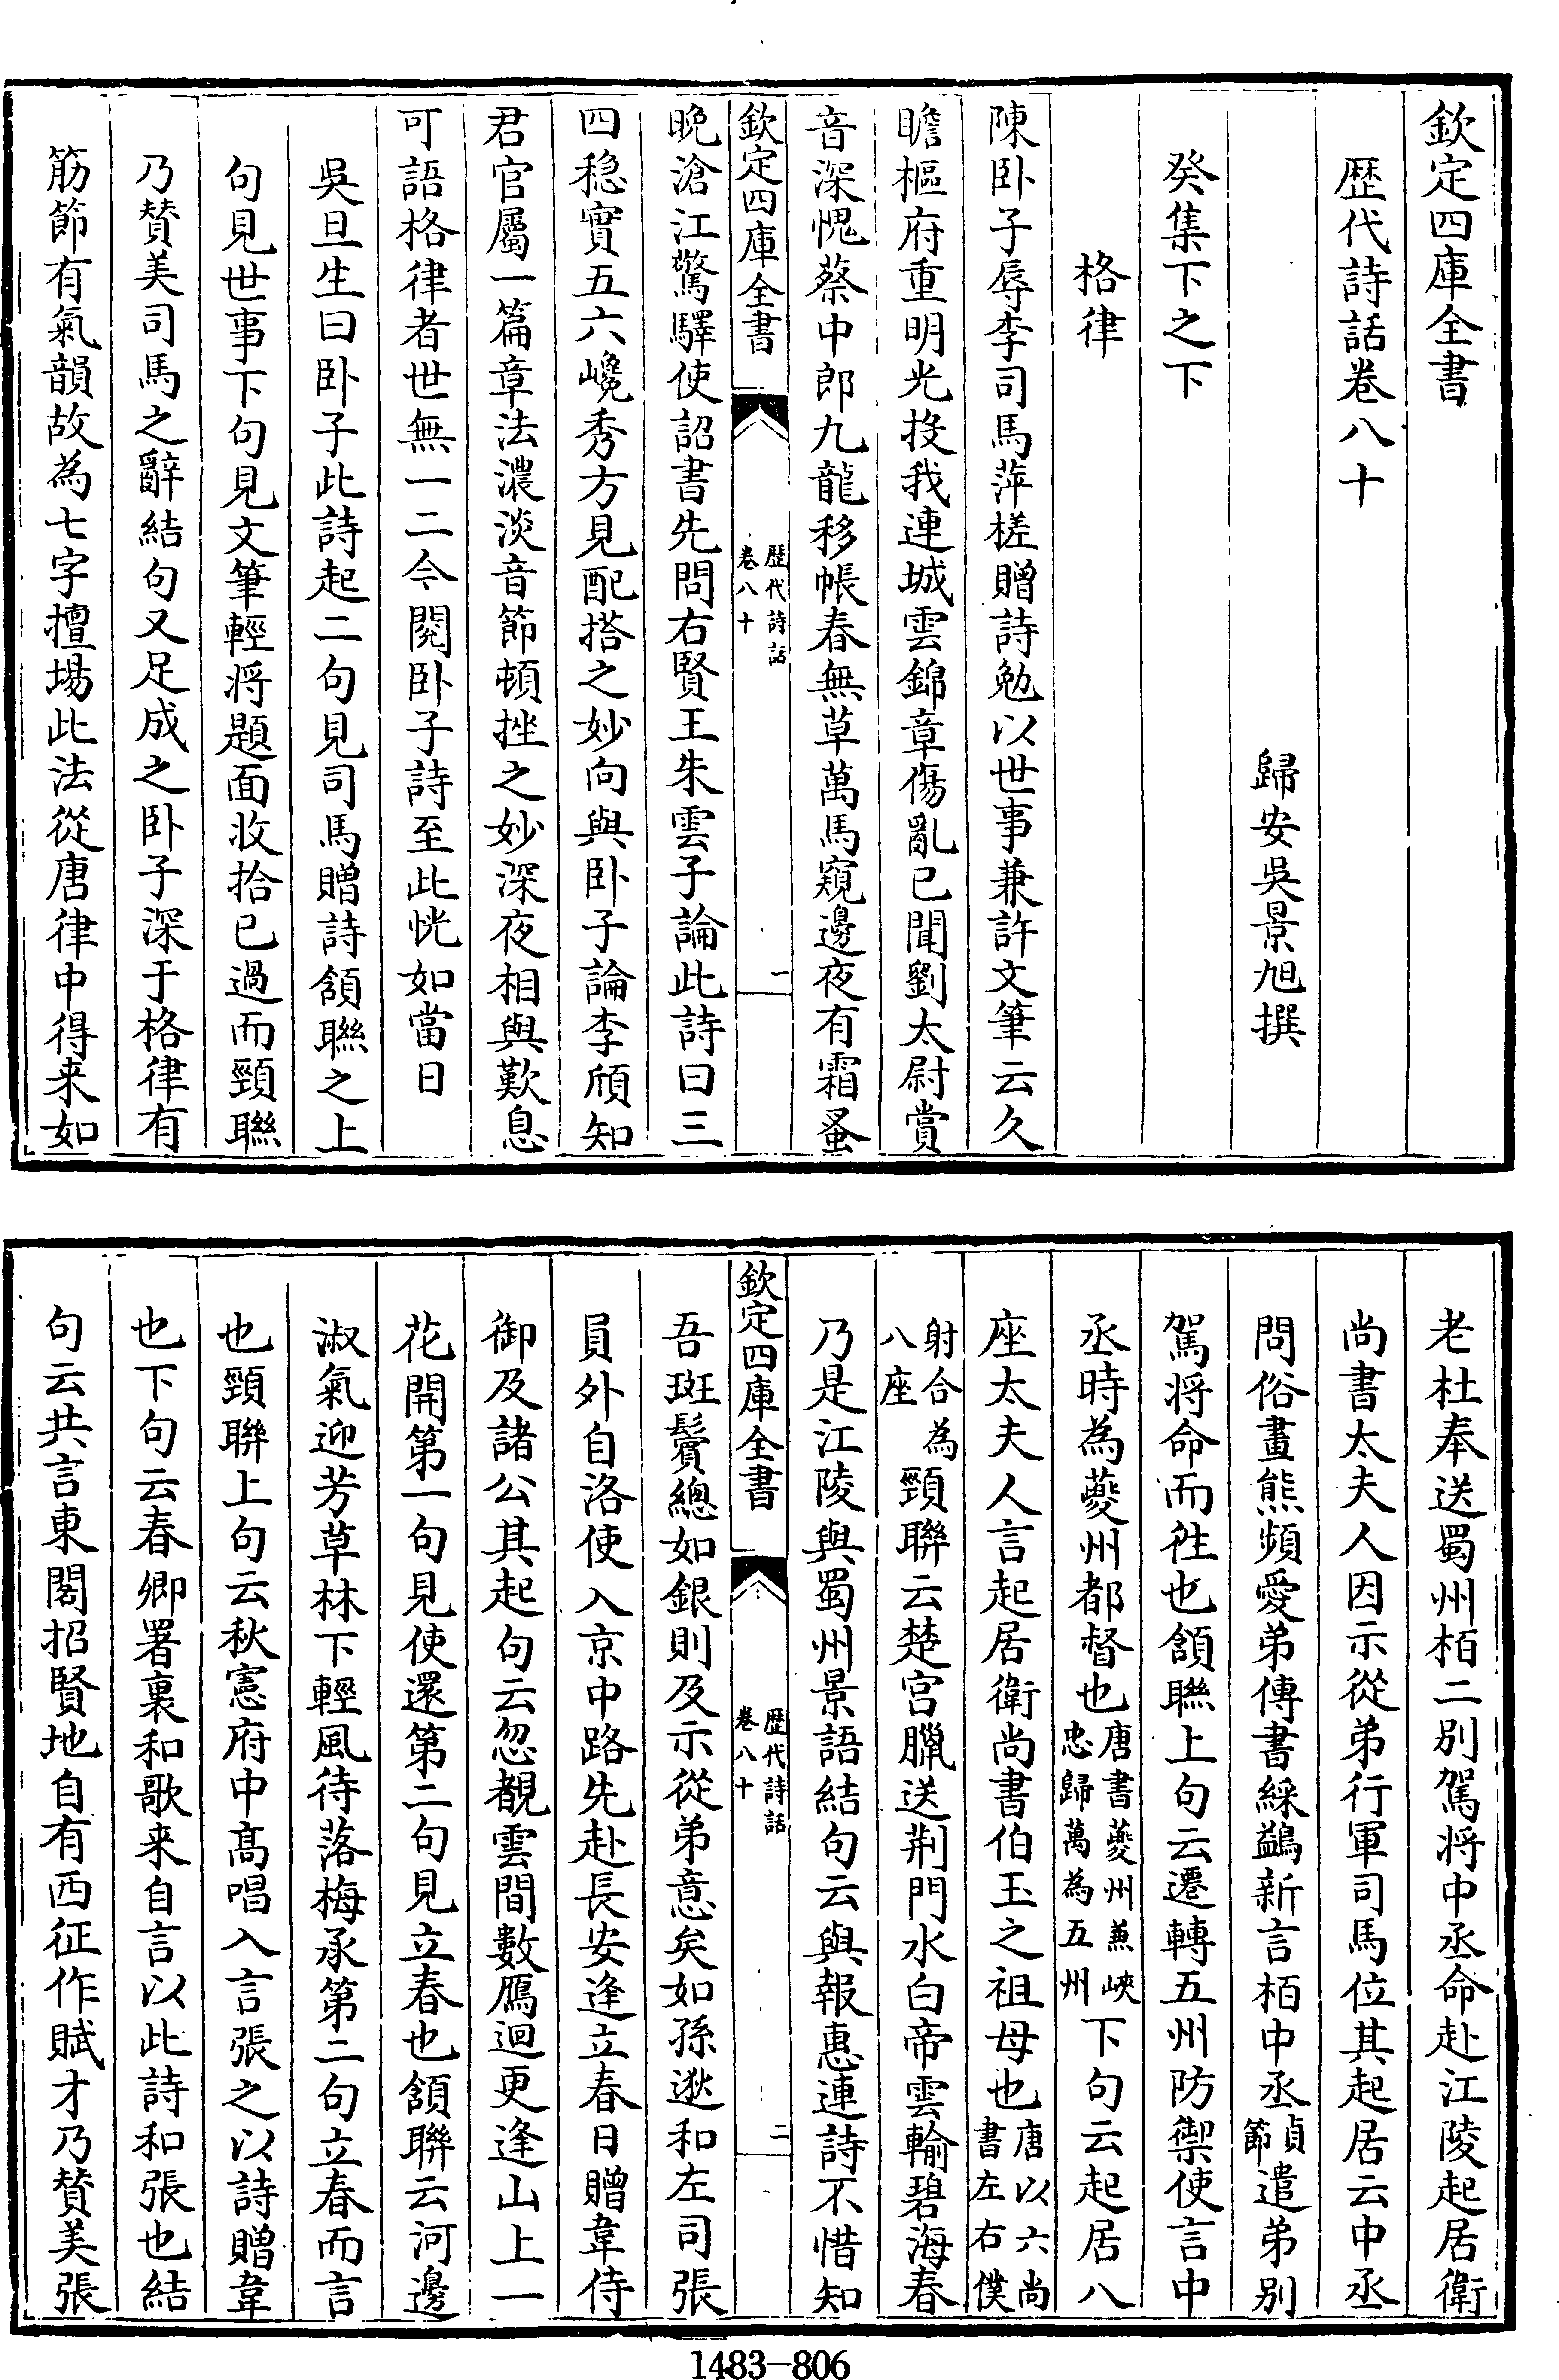 欽定四庫全書
歴代詩話卷八十
歸安吳景旭撰
癸集下之下
格律
陳卧子辱李司馬萍槎贈詩勉以世事兼許文筆云久
瞻樞府重明光投我連城雲錦章傷亂已聞劉太尉賞
音深愧蔡中郎九龍移帳春無草萬馬窺邊夜有霜蚤
欽定四庫全書
歴代詩話
卷八十
一
晩滄江驚驛使詔書先問右賢王朱雲子論此詩曰三
四穏實五六巉秀方見配搭之妙向與卧子論李頎知
君官屬一篇章法濃淡音節頓挫之妙深夜相與歎息
可語格律者世無一二今閲卧子詩至此恍如當日
吳旦生曰卧子此詩起二句見司馬贈詩頷聯之上
句見世事下句見文筆輕將題面收拾已過而頸聯
乃贊美司馬之辭結句又足成之卧子深于格律有
筋節有氣韻故為七字擅場此法從唐律中得来如
老杜奉送蜀州栢二别駕将中丞命赴江陵起居衛
尚書太夫人因示從弟行軍司馬位其起居云中丞
問俗畫熊頻愛弟傳書綵鷁新言栢中丞貞節遣弟别
駕将命而徃也頷聯上句云遷轉五州防禦使言中
丞時為夔州都督也唐書夔州兼峽忠歸萬為五州下句云起居八
座太夫人言起居衛尚書伯玉之祖母也唐以六尚書左右僕
射合為八座頸聯云楚宫臘送荆門水白帝雲輸碧海春
乃是江陵與蜀州景語結句云與報惠連詩不惜知
欽定四庫全書
歴代詩話
卷八十
二
吾斑鬢總如銀則及示從弟意矣如孫逖和左司張
員外自洛使入京中路先赴長安逢立春日贈韋侍
御及諸公其起句云忽覩雲間數鴈迴更逢山上一
花開第一句見使還第二句見立春也頷聯云河邊
淑氣迎芳草林下輕風待落梅承第二句立春而言
也頸聯上句云秋憲府中髙唱入言張之以詩贈韋
也下句云春卿署裏和歌来自言以此詩和張也結
句云共言東閣招賢地自有西征作賦才乃贊美張
1483-806